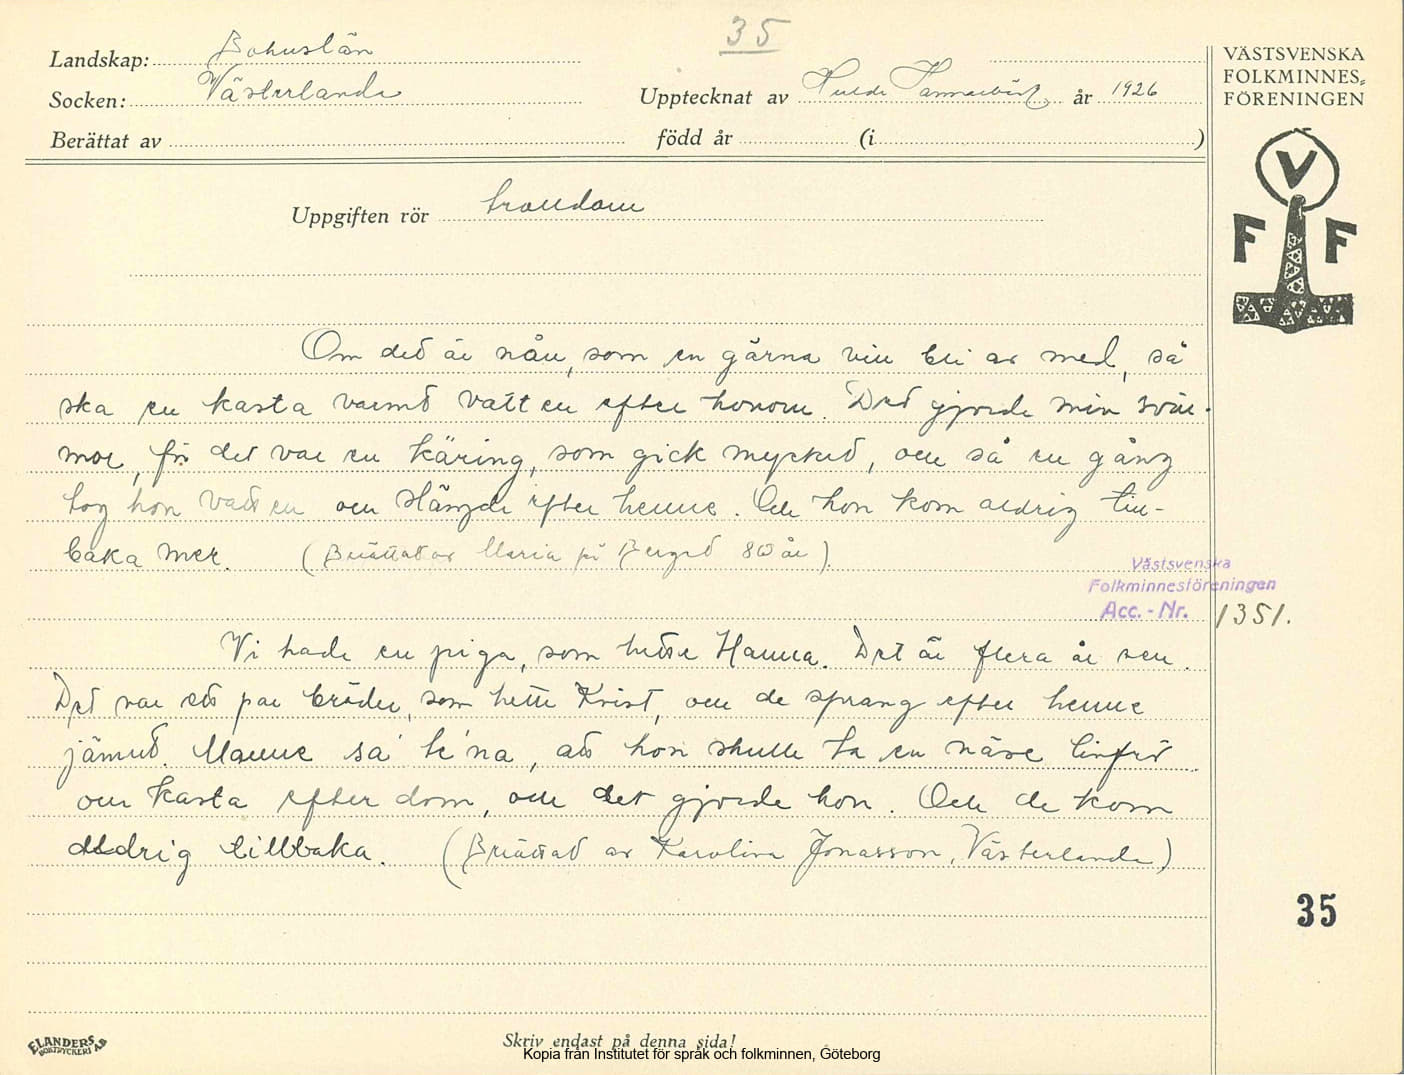 35
Landskap: Bohuslän
Socken: Västerlanda
Upptecknat av Hulda Hammarbäck år 1926
Berättat av född år (i )
VÄSTSVENSKA
FOLKMINNES-
FÖRENINGEN
V
F F
Uppgiften rör trolldom
Om det är nån, som en gärna vill bli av med, så
ska en kasta varmt vatten efter honom. Det gjorde min svär-
mor, för det var en käring, som gick mycket, och så en gång
tog hon vatten och slängde efter henne. Och hon kom aldrig till-
baka mer. (Berättat av Maria på Berget 80 år).
Västsvenska
Folkminnesföreningen
Acc. - Nr. 1351.
Vi hade en piga, som hette Hanna. Det är flera år sen.
Det var ett par bröder, som hette Krist, och de sprang efter henne
jämnt. Manne sa' te'na, att hon skulle ta en näve linfrö
och kasta efter dom, och det gjorde hon. Och de kom
aldrig tillbaka. (Berättat av Karolina Jonasson, Västerlanda)
35
ELANDERS
BOKTRYCKERI AB
Skriv endast på denna sida!
Kopia från Institutet för språk och folkminnen, Göteborg